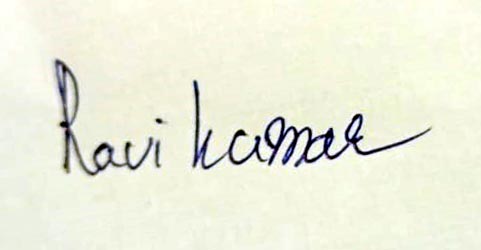 Ravi kumar